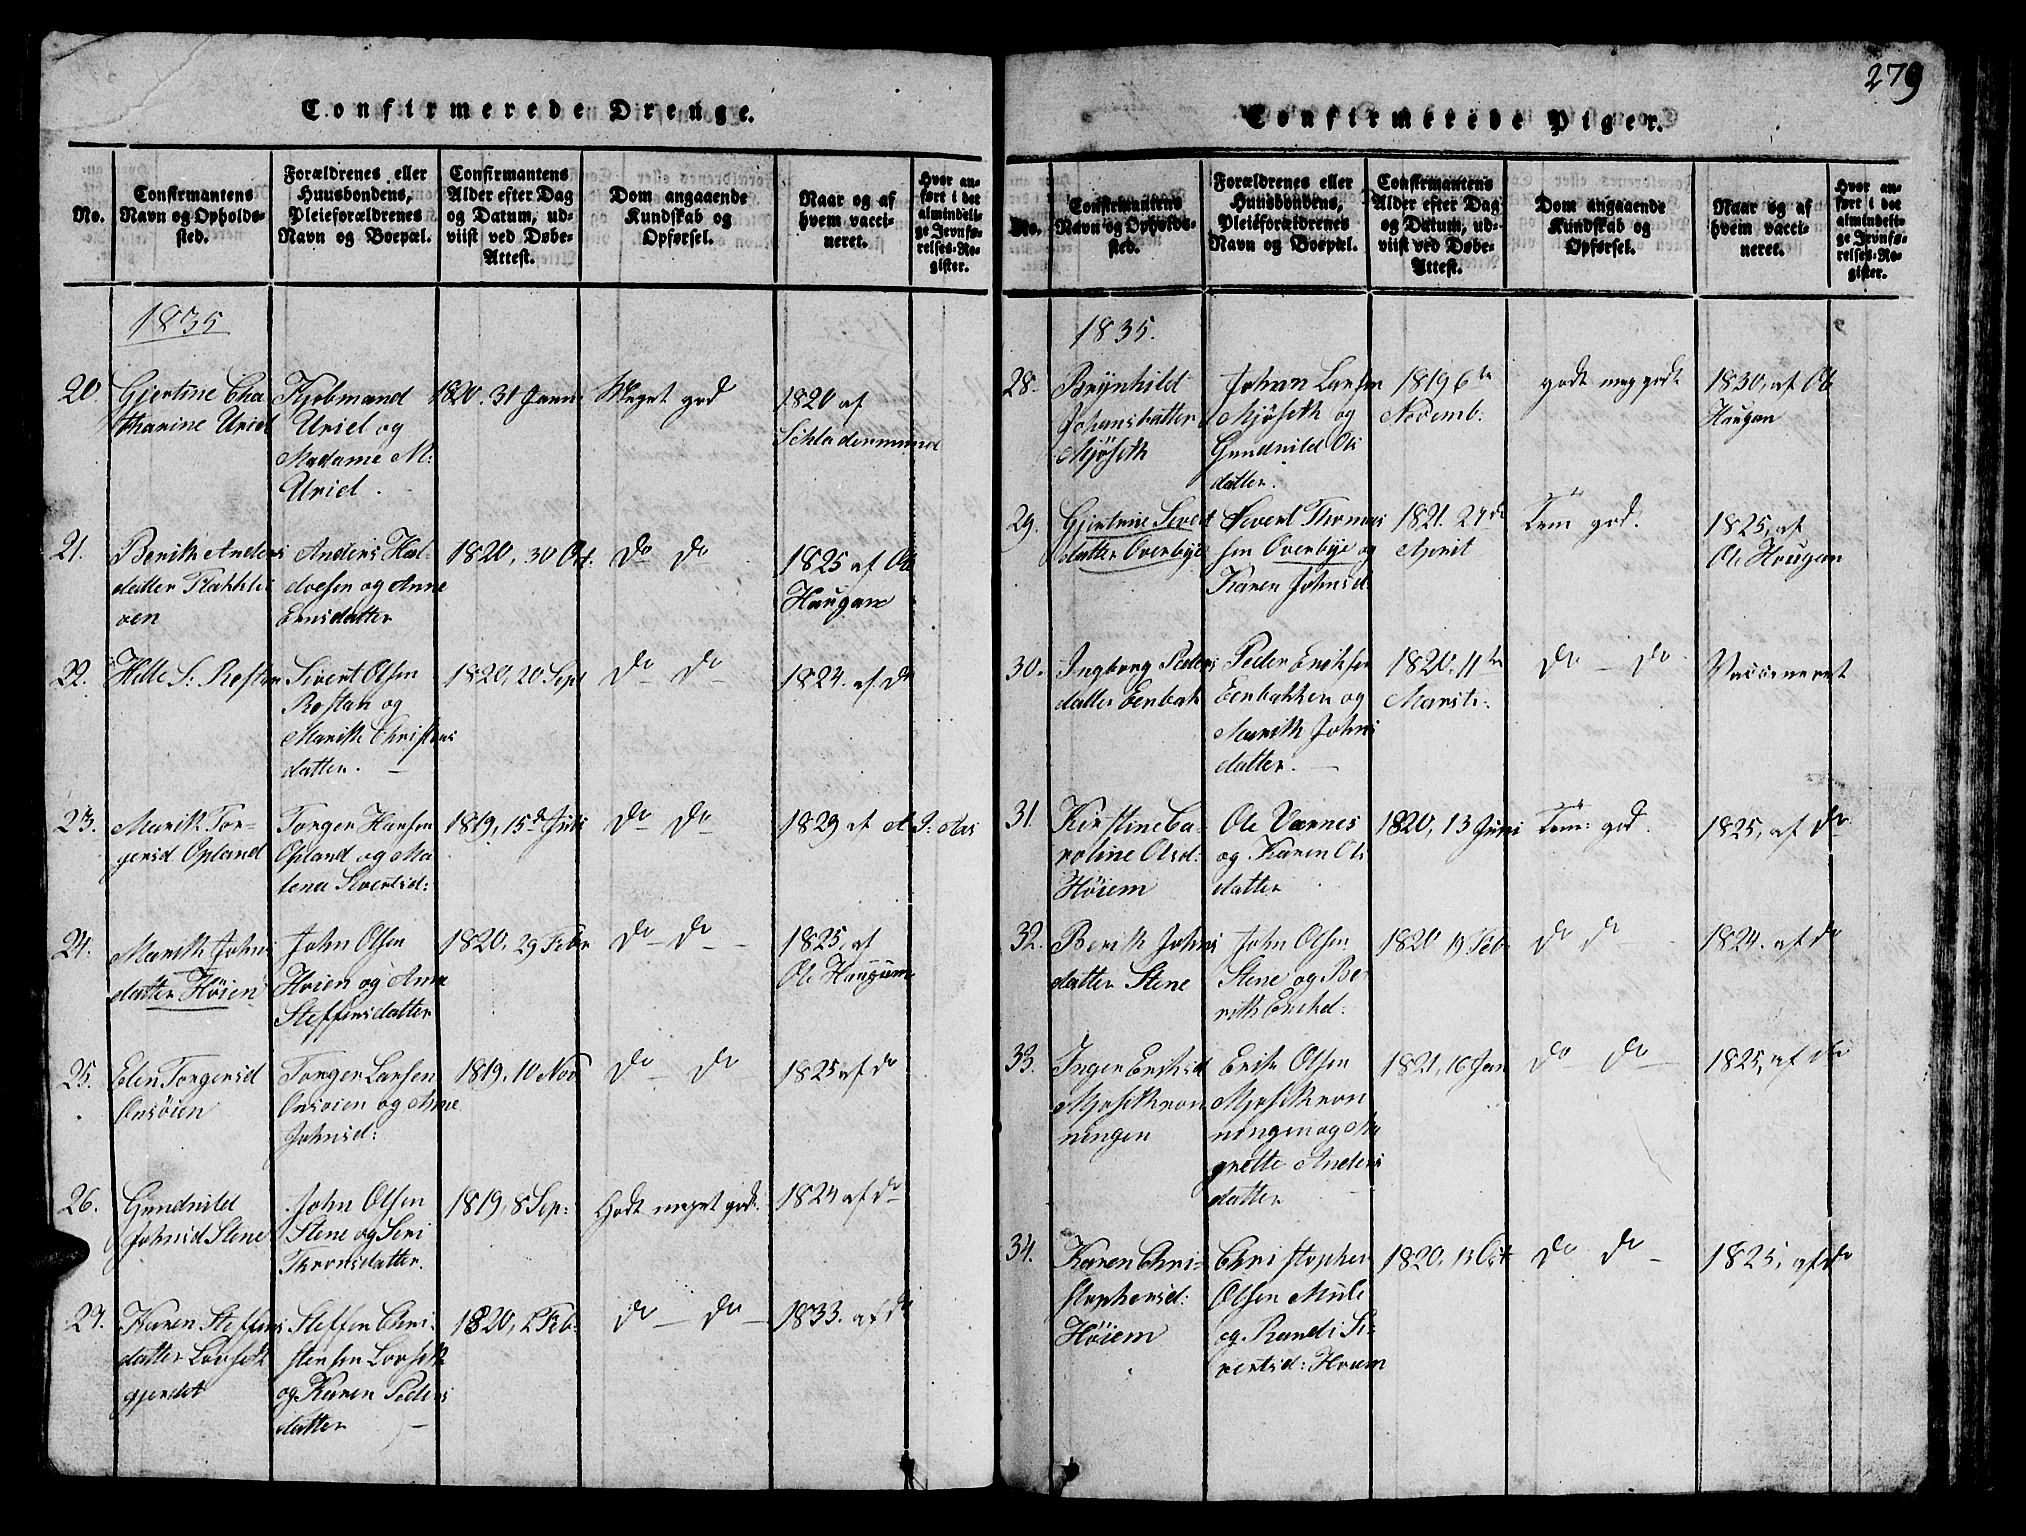 Confirmerede Drenge.
No.
Confirmantens
Navn og Opholds-
sted.
Forældrenes eller
Huusbondens,
Pleieforældrenes
Navn og Boepæl.
Confirmantens
Alder efter Dag
og Datum, ud-
viist ved Døbe-
Attest.
Dom angaaende
Kundskab og
Opførsel.
Naar og af
hvem vacci-
neret.
Hvor an-
ført i det
almindeli-
ge Jevnfø-
relses-Re-
gister.
1835
20.
Gjertine Cha
tharine Uriel
Kjøbmand
Uriel og
Madame M:
Uriel.
1820. 31 Janu:
Meget god
1820 af
21.
Berith Anders
datter Flakkli
ven
Anders Hal
dvosen og Anne
Ernsdatter
1820, 30 Oct.
do do
1825 af Ole
Haugan
22.
Rostan
Sivert Olsen
Rostan og
Marith Christens
datter. -
1820, 20 Sept
do - do
1824. af do
23.
Marith Tor-
gersd Opland
Torger Hansen
Opland og Ma
lena Sivertsd:
1819, 15de Juli
do - do
1829 af
24.
Marith Johns
datter Høien
John Olsen
Høien og Anne
Steffensdatter
1820, 29 Febr
do - do -
1825, af
Ole Haugum
25.
Elen Torgersd
Onsøien
Torger Larsen
Onsøien og Anne
Johnsd:
1819, 10 Nov
do - do
1825 af do
26.
Gundnild
Johnsd Stene
John Olsen
Stene og Seri
Thronsdatter.
1819, 8 Sep:
Godt meget godt.
1824 af do
27.
Karen Steffens
datter Lorseth
gjerdet
Steffen Chri-
stensen Lorseth
og Karen Peders
datter -
1820, 2 Feb:
do - do -
1833. af do
279
Confirmerede Piger.
No.
Confirmantens
Navn og Opholds-
sted.
Forældrenes eller
Huusbondens,
Pleieforældrenes
Navn og Boepæl.
Confirmantens
Alder efter Dag
og Datum, ud-
viist ved Døbe-
Attest.
Dom angaaende
Kundskab og
Opførsel.
Naar og af
hvem vacci-
neret.
Hvor an-
ført i det
almindeli-
ge Jevnfø-
relses-Re-
gister.
1835.
28.
Brynhild
Johansdatter
Mjøseth
Johan Larsen
Mjøseth og
Gundnild Ols
datter.
1819 6te
Novemb:
godt meg godt
1830, af Ole
Haugan
29.
Gjertrine Sivert
datter Overbye
Sivert Thomas
sen Overbye og
Karen Johnsd
1821. 27de
April
Tem god.
1825, af
Ole Hougan
30.
Ingborg Peders
datter Eenbak
Peder Eriksen
Eenbakken og
Marith Johns
datter. -
1820, 11te
Marti:
do - do
Vaccineret
31.
Kirstine Ca-
roline Olsd:
Høiem
Ole Værnes
og Karen Ols
datter
1820, 13 Juni
Tem: god.
1825, af do
32.
Berith Johns
datter Stene
John Olsen
Stene og Be-
rith Eriksd.
1820 19 Feb
do do
1824. af do
33.
Inger Eriksd
Mjøsethrøn
ningen
Erik Olsen
Mjøsethrøn
ningen og Ma
grette Anders
datter
1821, 16 Jan
do do -
1825, af do
34.
Karen Chri-
stophersd:
Høiem
Christopher
Olsen Mule
og Randi Si-
vertsd: Høiem
1820, 13 Oct
do do -
1825, af do